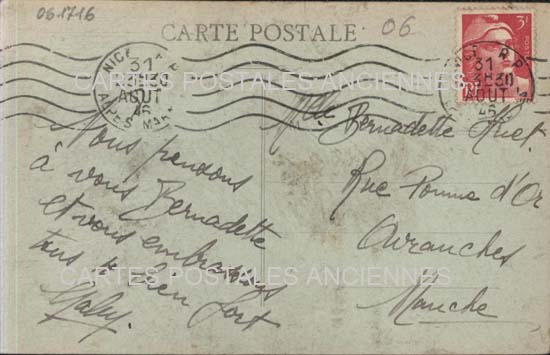 061716
CARTE POSTALE
06
3F
NICE R.P.
31
3H30
AOUT
46
ALPES MARMES
NICE R.P.
31
3H30
AOUT
46
CARTES POSTALES ANCIENNES
Mlle Bernadette Huet
Rue Pomme d'Or
Avranches
Manche
Nous pensons
à vous Bernadette
et vous embrassons
tous bien fort
CARTES POSTALES ANCIENNES